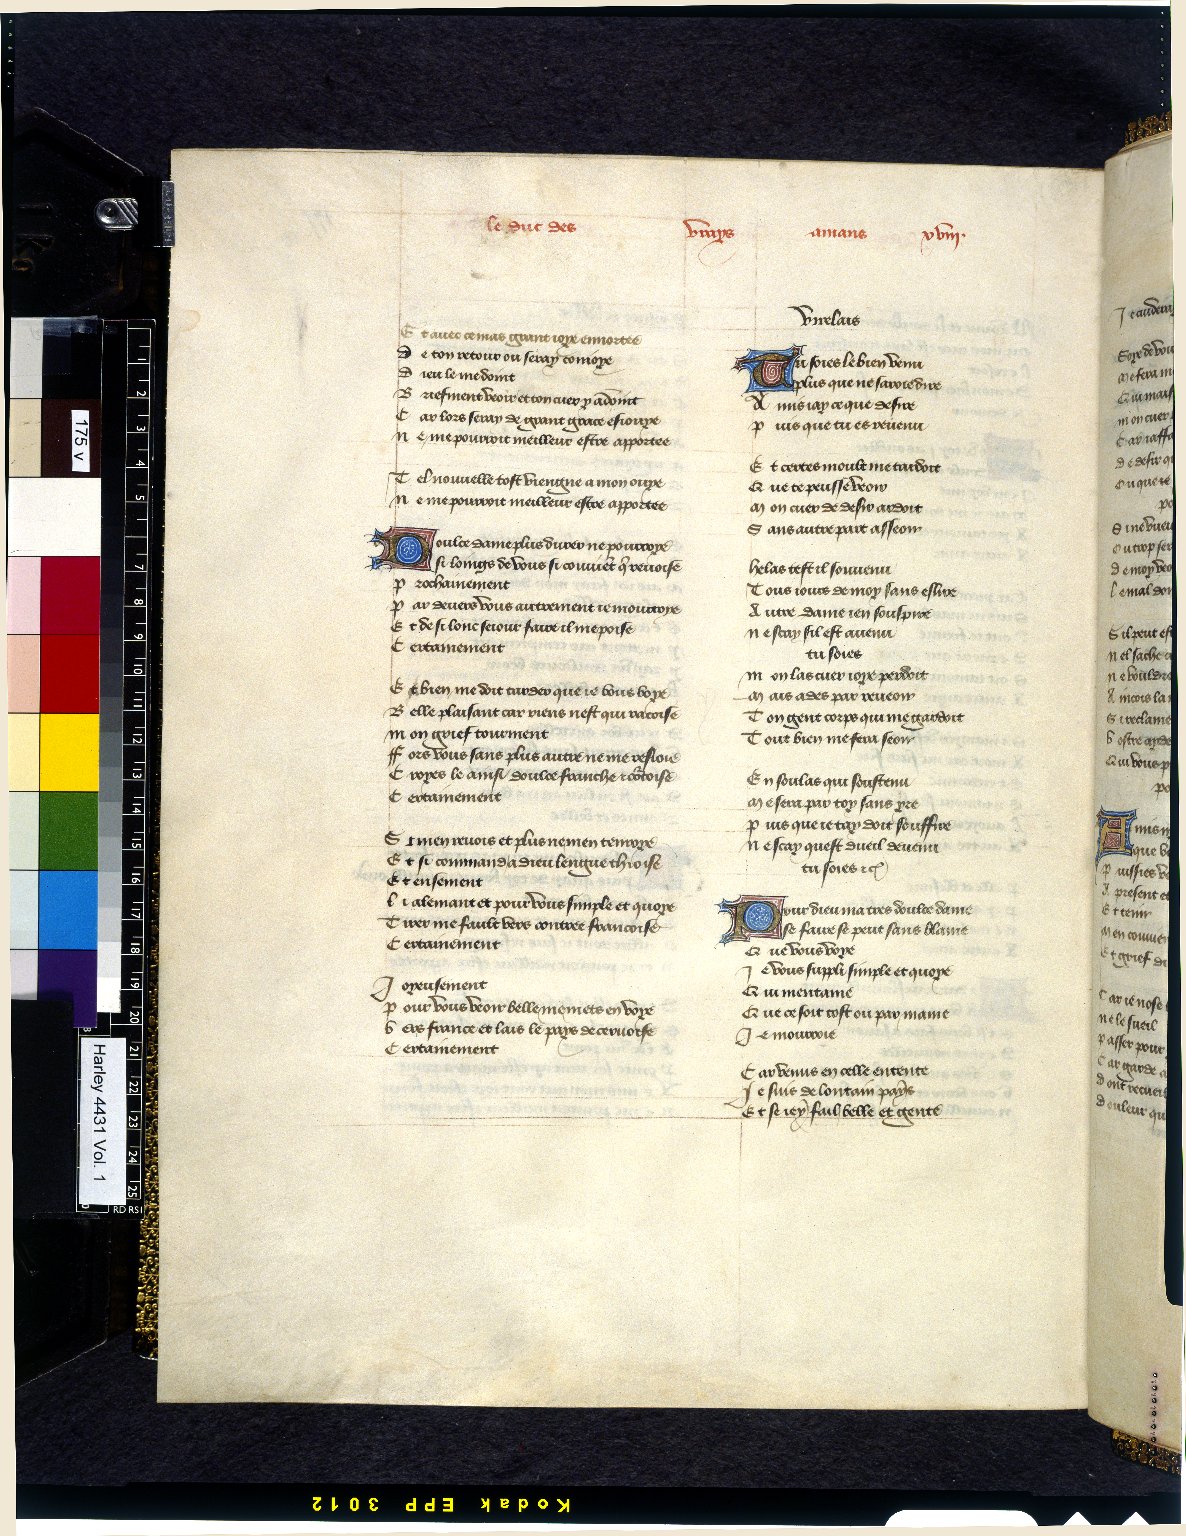 le duc des vrays amans xviii.
Et avec ce mas grant ioye enortee
De ton retour ou seray comoye
Dieu le me doint
Briefment veoir et ton cuer y adoint
Car lors seray de grant grace esiouye
Ne me pourroit meilleur estre apportee
Tel nouvelle tost viengne a mon ouye
Ne me pourroit meilleur estre apportee
Doulce dame plus durer ne pourroye
si loings de vous si couuēt q̄ reuoise
prochainement
par deuers vous autrement ie mourroye
Et de si lonc seiour faire il me poise
Certainement
Et bien me doit tarder que ie vous voye
Belle plaisant car riens nest qui racoise
mon grief tourment
ffors vous sans plus autre ne me resioie
Croyes le ainsi doulce franche & cōtoise
Certainement
Si men reuois et plus ne men tenroye
Et si command a dieu lengue thioise
Et ensement
li alemant et pour vous simple et quoye
Tirer me fault vers contree francoise
Certainement
Joyeusement
pour vous veoir belle me mets en voye
vers france et lais le pays de ceruoise
Certainement
Virelais
Tu soies le bien venu
plus que ne saroie dire
Amis iay ce que desire
puis que tu es reuenu
Et certes moult me tardoit
Que te peusse veoir
Mon cuer de desir ardoit
Sans autre part asseoir
helas test il souuenu
Tous iours de moy sans eslire
Autre dame ien souspire
ne scay sil est auenu
tu soies
mon las cuer ioye perdoit
Mais ades par reueoir
Ton gent corps qui me gardoit
Tout bien me fera seoir
En soulas qui soustenu
Me sera par toy sans yre
puis que ie tay doit souffire
ne scay quest dueil deuenu
tu soies &c
pour dieu ma tres doulce dame
se faire se peut sans blame
Que vous voye
Je vous suppli simple et quoye
Qui mentame
Que ce soit tost ou par mame
Je mourroie
Car venus en celle entente
Je suis de lontain pays
Et se iey fail belle et gente
175 v
Harley 4431 Vol. 1
Kodak EPP 3012